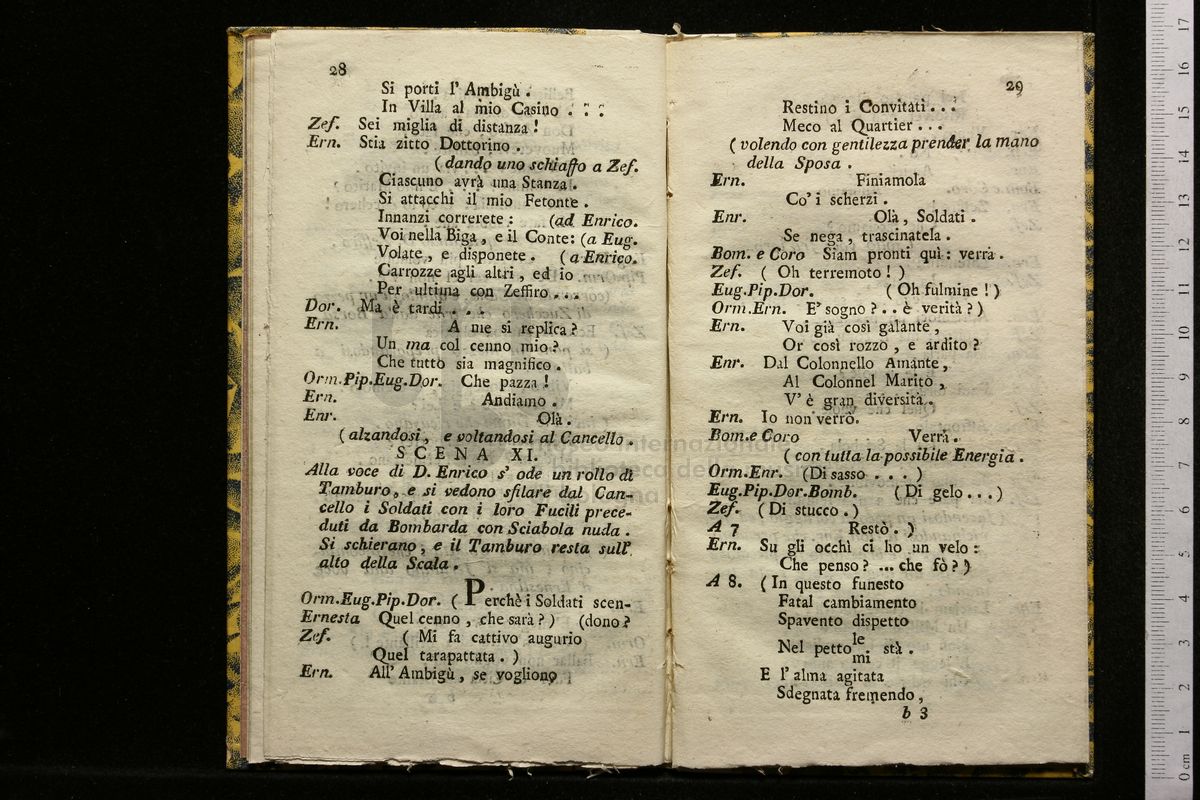 28
Si porti l' Ambigù .
In Villa al mio Casino . . . .
Zef. Sei miglia di distanza !
Ern. Stia zitto Dottorino .
( dando uno schiaffo a Zef.
Ciascuno avrà una Stanza .
Si attacchi il mio Fetonte .
Innanzi correrete : (ad Enrico.
Voi nella Biga , e il Conte: (a Eug.
Volate , e disponete . (a Enrico.
Carrozze agli altri , ed io
Per ultima con Zeffiro . . .
Dor. Ma è tardi . . .
Ern. A me si replica ?
Un ma col cenno mio ?
Che tutto sia magnifico .
Orm.Pip.Eug.Dor. Che pazza !
Ern. Andiamo .
Enr. Olà .
( alzandosi , e voltandosi al Cancello .
SCENA XI.
Alla voce di D. Enrico s' ode un rollo di
Tamburo, e si vedono sfilare dal Can-
cello i Soldati con i loro Fucili prece-
duti da Bombarda con Sciabola nuda .
Si schierano , e il Tamburo resta sull'
alto della Scala .
Orm.Eug.Pip.Dor. ( Perchè i Soldati scen-
Ernesta Quel cenno , che sarà ? ) (dono ?
Zef. ( Mi fa cattivo augurio
Quel tarapattata . )
Ern. All' Ambigù , se vogliono
29
Restino i Convitati . . .
Meco al Quartier . . .
( volendo con gentilezza prender la mano
della Sposa .
Ern. Finiamola
Co' i scherzi .
Enr. Olà , Soldati .
Se nega , trascinatela .
Bom. e Coro Siam pronti quì : verrà .
Zef. ( Oh terremoto ! )
Eug.Pip.Dor. ( Oh fulmine ! )
Orm.Ern. E' sogno ? . . è verità ? )
Ern. Voi già così galante ,
Or così rozzo , e ardito ?
Enr. Dal Colonnello Amante ,
Al Colonnel Marito ,
V' è gran diversità .
Ern. Io non verrò.
Bom.e Coro Verrà .
( con tutta la possibile Energia .
Orm.Enr. (Di sasso . . . )
Eug.Pip.Dor.Bomb. ( Di gelo . . . )
Zef. ( Di stucco . )
A 7 Restò . )
Ern. Su gli occhì ci ho un velo :
Che penso ? ... che fò ? )
A 8. ( In questo funesto
Fatal cambiamento
Spavento dispetto
Nel petto le stà .
mi
E l' alma agitata
Sdegnata fremendo ,
b 3